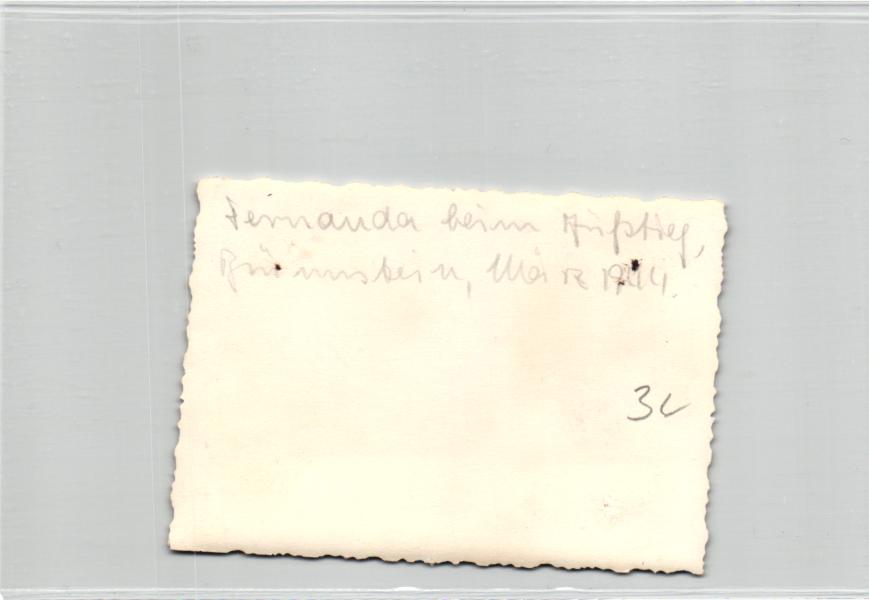 Fernanda beim Aufstieg,
Brünnstein, März 1944.
3c